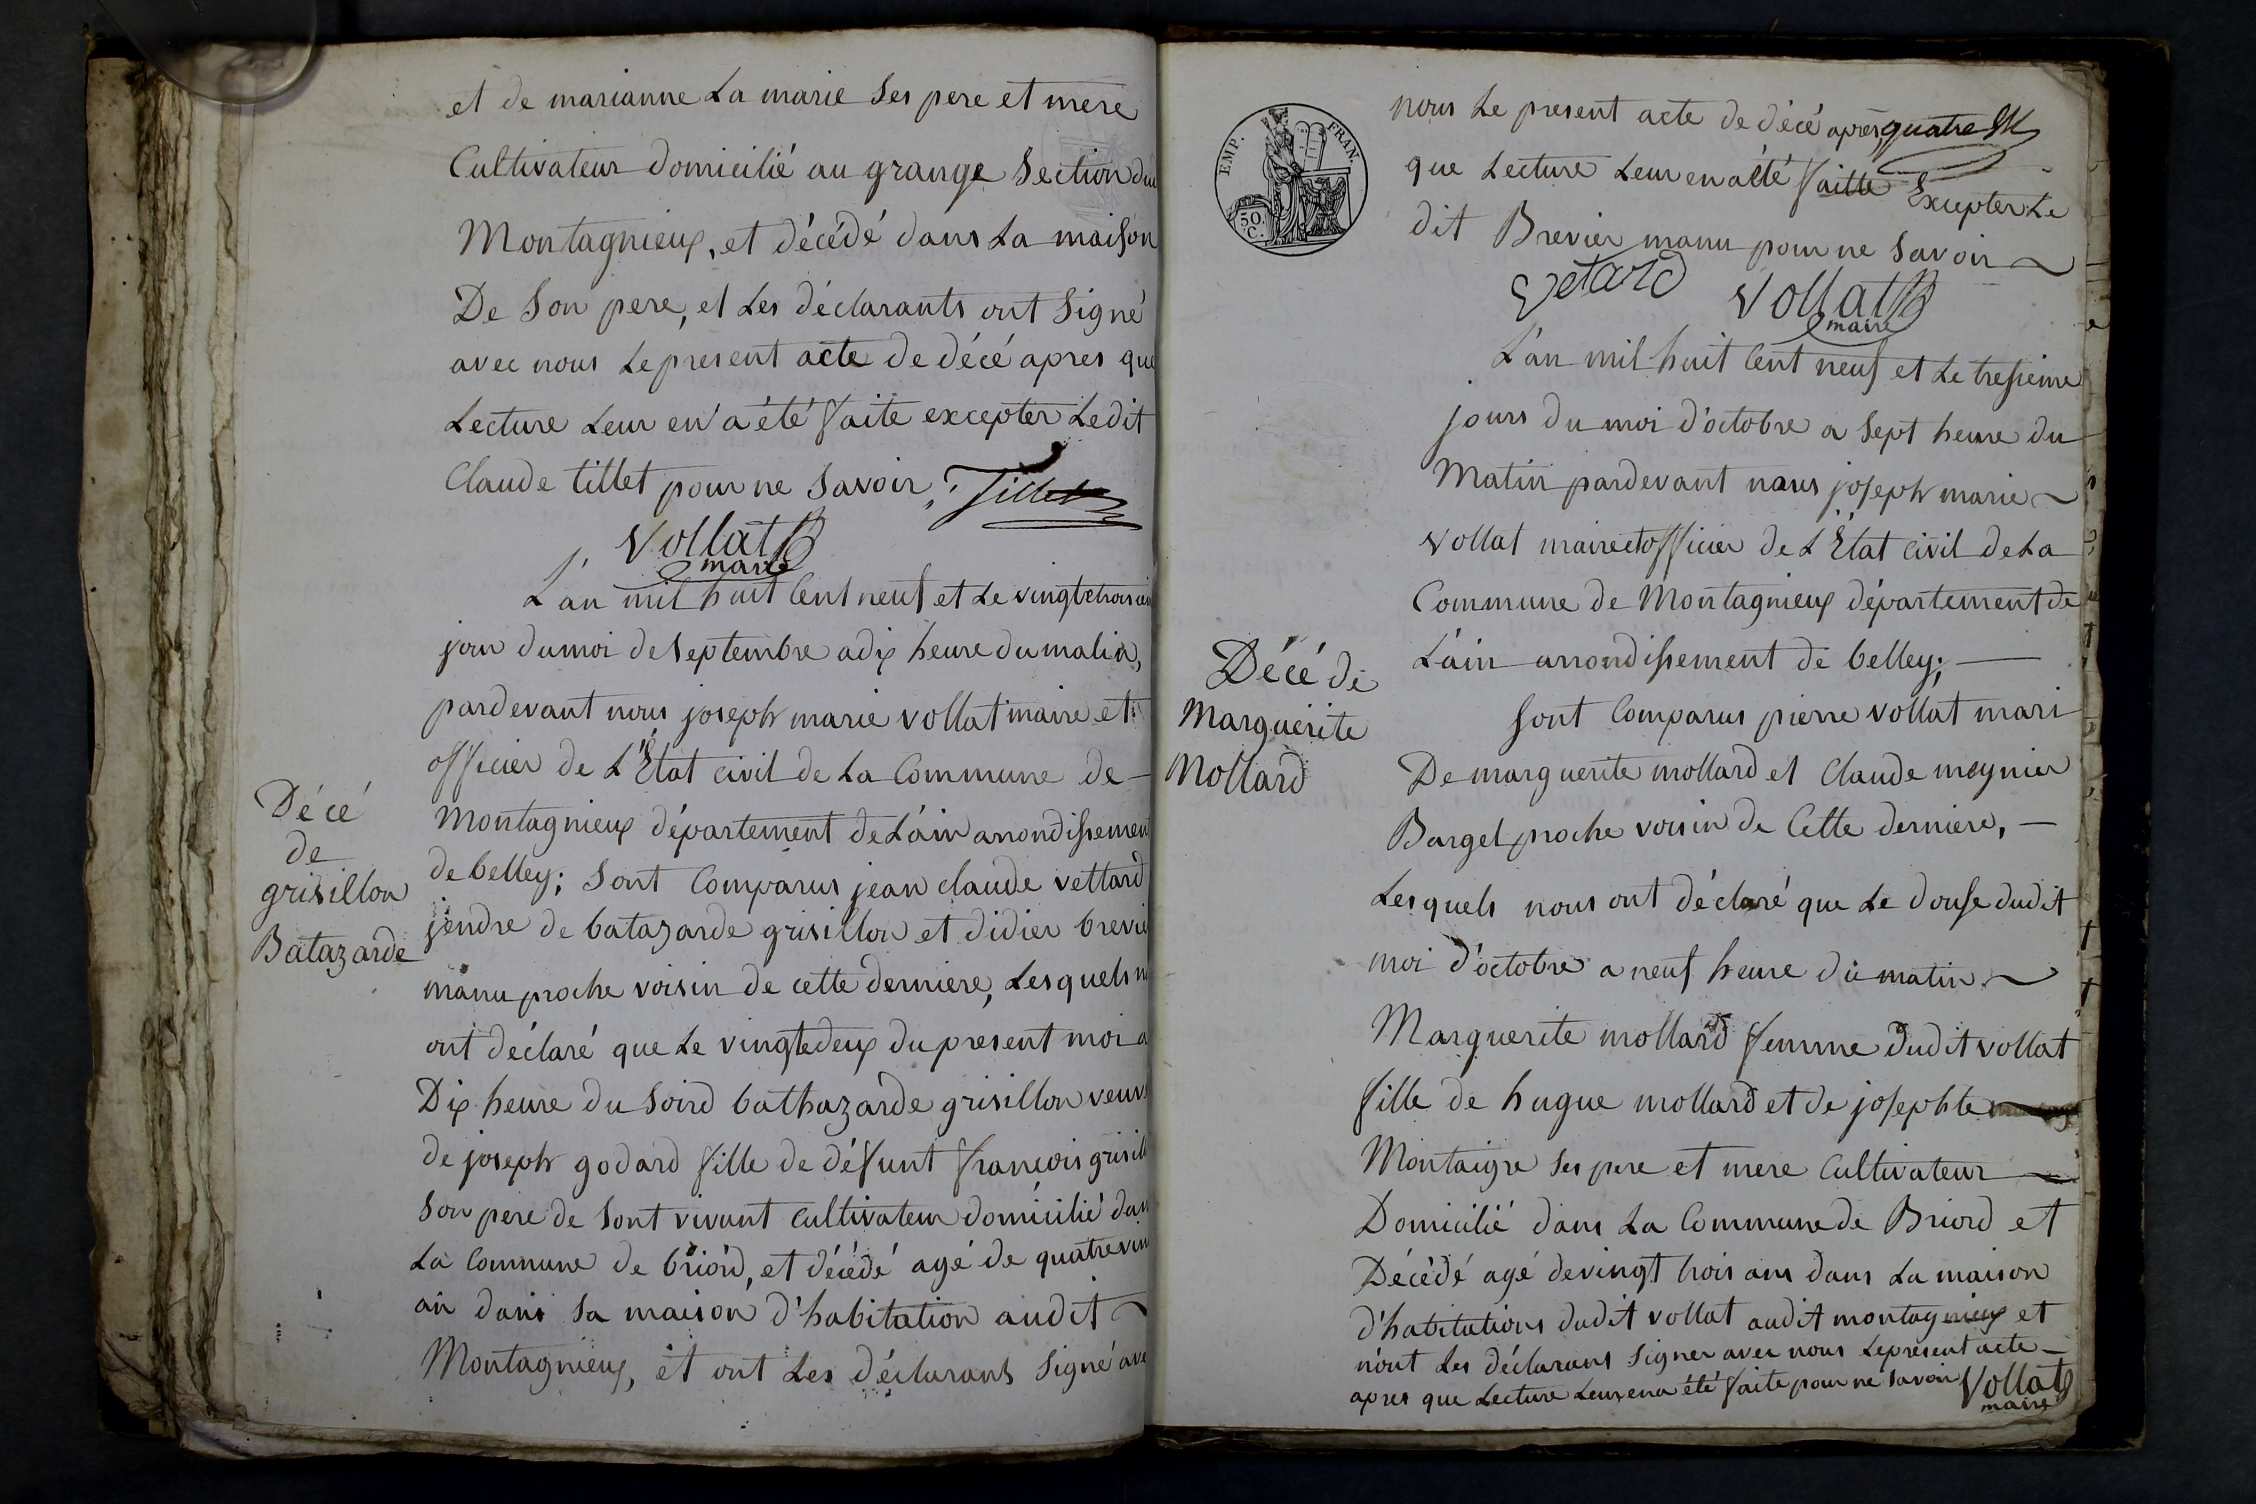 et de marianne La marie Ses pere et mere
Cultivateur domicilié au grange Section du
Montagnieux, et décédé dans La maison
De Son pere, et Les déclarants ont Signé
avec nous Le present acte de décé apres que
Lecture Leur en a été faite excepter Ledit
Claude tillet pour ne Savoir, Tillet
Vollat
maire
L'an mil huit Cent neuf et Le vingtetroisiem
jour du moi de Septembre a dix heure du matin,
pardevant nous joseph marie vollat maire et
officier de L'État civil de La Commune de
Décé
de
grisillon
Batazarde
Montagnieux département de L'ain arrondissement
de belley; Sont Comparus jean claude vettard
jendre de batazarde grisillon et didier brevie
manu proche voisin de cette derniere, Lesquels n
ont déclaré que Le vingtedeux du present moi a
Dix heure du Soird bathazarde grisillon veuve
de joseph godard fille de défunt françois grisill
Son pere de Sont vivant cultivateur domicilié dan
La Commune de briord, et décédé agé de quatrevin
an dans Sa maison d'habitation audit
Montagnieux, et ont Les déclarants Signé ave
EMP. FRAN.
50.
C.
nous Le present acte de décé apres quatre
que Lecture Leur en a été faitte Excepter Le
dit Brevier manu pour ne Savoir
Vetard Vollat
maire
L'an mil huit Cent neuf et Le tresieme
jours du moi d'octobre a Sept heure du
Matin pardevant nous joseph marie
Vollat maire et officier de L'État civil de La
Commune de Montagnieux département de
L'ain arrondissement de belley;
Décé de
Marguerite
Mollard
Sont Comparus pierre vollat mari
De marguerite mollard et Claude meynier
Bargel proche voisin de Cette derniere,
Lesquels nous ont déclaré que Le douse dudit
moi d'octobre a neuf heure du matin
Marguerite mollard femme dudit vollat
fille de hugue mollard et de josephte
Montaigre Ses pere et mere Cultivateur
Domicilié dans La Commune de Briord et
Décédé agé de vingt trois ans dans La maison
d'habitations dudit vollat audit montagnieux et
n'ont Les déclarans Signer avec nous Le present acte
apres que Lecture Leur en a été faite pour ne Savoir Vollat
maire